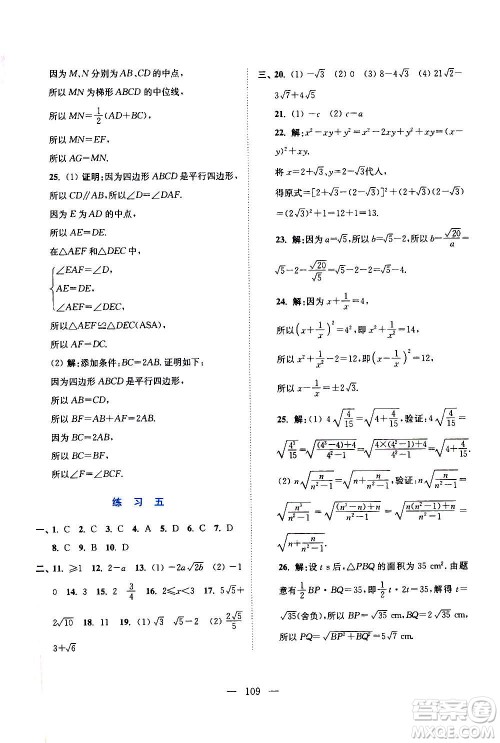 因为 M、N 分别为 AB、CD 的中点,
所以 MN 为梯形 ABCD 的中位线,
所以 MN=1/2(AD+BC),
所以 MN=EF,
所以 AG=MN.
25. (1) 证明:因为四边形 ABCD 是平行四边形,
所以 CD∥AB,所以∠D=∠DAF.
因为 E 为 AD 的中点,
所以 AE=DE.
在△AEF 和△DEC 中,
{∠EAF=∠D,
AE=DE,
∠AEF=∠DEC,
所以△AEF≌△DEC(ASA),
所以 AF=DC.
(2) 解:添加条件:BC=2AB. 证明如下:
因为四边形 ABCD 是平行四边形,
所以 AB=CD
所以 BF=AB+AF=2AB.
因为 BC=2AB,
所以 BC=BF,
所以∠F=∠BCF.
练 习 五
一、1. C 2. C 3. C 4. A 5. D 6. C 7. D
8. C 9. B 10. D
二、11. ≥1 12. 2-a 13. (1) 2a√(2b) (2) -1
0 14. 3 15. 3/4 16. 2≤x<3 17. 5√5+
2√10 18. 11 19. (1) √5/5 (2) 2√5/5
3+√6
三、20. (1) -√3 (2) 0 (3) √6 (4) 6-
3√7+4√5
21. (1) -c (2) c-a
22. 解:x²-xy+y²=x²+2xy+y²-3xy=(x+
y)²-3xy.
将 x=2+√3,y=2-√3代入,
得原式=[2+√3+(2-√3)]²-3×(2+√3)×
(2-√3)=16-3×1=13.
23. 解:因为 a=√5,所以 b=√5-2,所以 b-√20/a=
√5-2-√20/√5=√5-2-2=√5-4.
24. 解:因为 √x+1/√x=4,
所以(√x+1/√x)²=4²,所以(√x-1/√x)²=12,
所以 √x-1/√x=±2√3.
25. 解:(1) 4√(4/15)=√(4+4/15),验证:4√(4/15)=
√(4³/15)=√((4³-4)+4)/15)=√((4×(4²-1)+4)/15)=
√(4+4/15) (2) n√(n/(n²-1))=√(n+n/(n²-1)),验证:
n√(n/(n²-1))=√(n³/(n²-1))=√((n³-n+n)/(n²-1))=
√((n(n²-1)+n)/(n²-1))=√(n+n/(n²-1))
26. 解:设 t s后,△PBQ 的面积为 35 cm²,由题
意有 1/2BP·BQ=35,即 1/2t·2t=35,解得 t=
√35或-√35(舍负),所以 BP=√35 cm,BQ=2√35 cm,
所以 PQ=√(BP²+BQ²)=5√7 cm
— 109 —